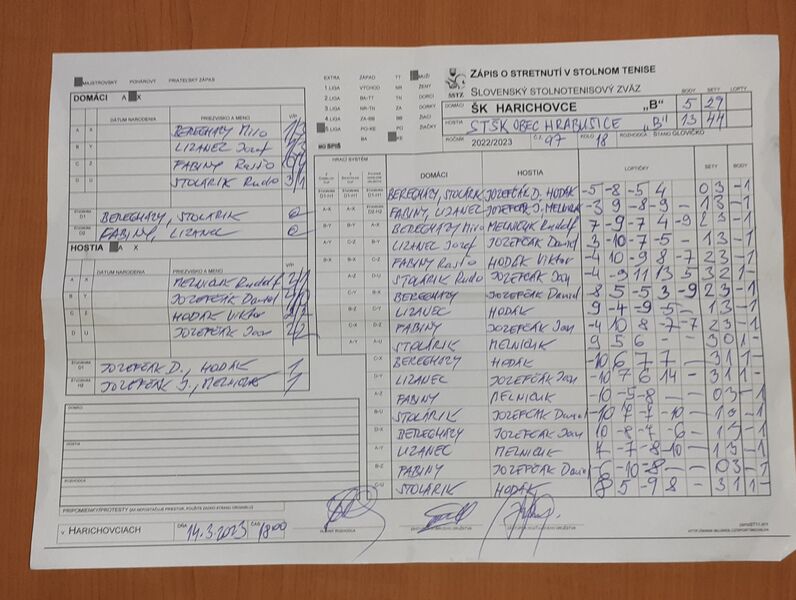 MAJSTROVSKÝ POHÁROVÝ PRIATEĽSKÝ ZÁPAS
DOMÁCI A X
DÁTUM NARODENIA PRIEZVISKO A MENO V/P
A X BEREGHAZY Miro
B Y LIZANEC Jozef
C Z FABINY Rasťo
D U STOLÁRIK Rudo 3/1
BEREGHAZY, STOLARIK 0
FABINY, LIZANEC 0
HOSTIA A X
DÁTUM NARODENIA PRIEZVISKO A MENO V/P
A X MELNICUK Rudolf
B Y JOZEFČÁK Daniel
C Z HODÁK Viktor
D U JOZEFČÁK Jan 2/2
JOZEFČÁK D., HODÁK 1
JOZEFČÁK J., MELNICUK 1
DOMÁCI
HOSTIA
ROZHODCA
V HARICHOVCIACH DŇA 14.3.2023 ČAS 18:00
EXTRA ZÁPAD TT MUŽI
1 LIGA VÝCHOD NR ŽENY
2 LIGA BA-TT TN DORCI
3 LIGA NR-TN ZA DORKY
4 LIGA ZA-BB BB ŽIACI
5 LIGA PO-KE PO ŽIAČKY
BA KE
SSTZ
ZÁPIS O STRETNUTÍ V STOLNOM TENISE
SLOVENSKÝ STOLNOTENISOVÝ ZVÄZ BODY SETY LOPTY
DOMÁCI ŠK HARICHOVCE „B" 5 29
HOSTIA STŠK OBEC HRABUŠICE „B" 13 44
ROČNÍK 2022/2023 Č.Z. 97 KOLO 18 ROZHODCA SLOVIČKO
HRACÍ SYSTÉM DOMÁCI HOSTIA LOPTIČKY SETY BODY
BEREGHAZY, STOLARIK JOZEFČÁK D., HODÁK -5 -8 -5 4 0 3 -1
FABINY, LIZANEC JOZEFČÁK J., MELNICUK -3 9 -8 -9 - 1 3 -1
BEREGHAZY Miro MELNICUK Rudolf 7 -9 -7 4 -9 2 3 -1
LIZANEC Jozef JOZEFČÁK Daniel 3 -10 -7 -5 - 1 3 -1
FABINY Rasťo HODÁK Viktor -4 10 -9 8 -7 2 3 -1
STOLARIK Rudo JOZEFČÁK Jan -4 -9 11 13 5 3 2 1 -
BEREGHAZY JOZEFČÁK Daniel -8 5 -5 3 -9 2 3 -1
LIZANEC HODÁK 9 -4 -9 -5 - 1 3 -1
FABINY JOZEFČÁK Jan -4 10 8 -7 -7 2 3 -1
STOLÁRIK MELNICUK 9 5 6 - - 3 0 1 -
BEREGHAZY HODÁK -10 6 7 7 - 3 1 1 -
LIZANEC JOZEFČÁK Jan -10 7 6 14 - 3 1 1 -
FABINY MELNICUK -10 -5 -8 - - 0 3 -1
STOLÁRIK JOZEFČÁK Daniel -10 7 -7 -10 - 1 3 -1
BEREGHAZY JOZEFČÁK Jan 10 -8 -7 -6 - 1 3 -1
LIZANEC MELNICUK 7 -7 -8 -10 - 1 3 -1
FABINY JOZEFČÁK Daniel -6 -10 -8 - - 0 3 -1
STOLÁRIK HODÁK 8 5 -9 8 - 3 1 1 -